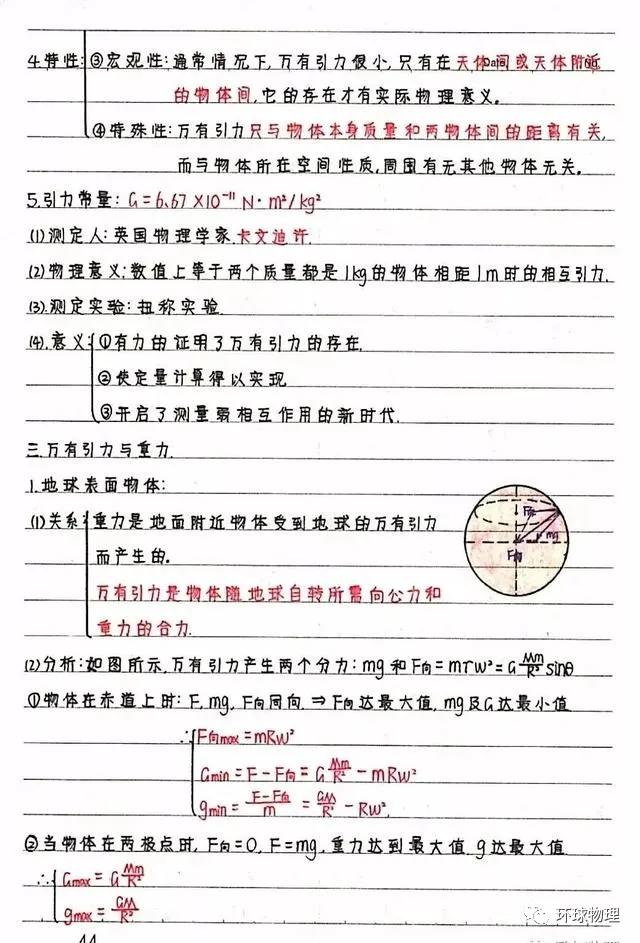 4.特性:③宏观性:通常情况下,万有引力很小,只有在天体间或天体附近
的物体间,它的存在才有实际物理意义。
④特殊性:万有引力只与物体本身质量和两物体间的距离有关,
而与物体所在空间性质,周围有无其他物体无关。
5.引力常量: G=6.67×10⁻¹¹ N·m²/kg²
(1)测定人:英国物理学家.卡文迪许.
(2)物理意义:数值上等于两个质量都是1kg的物体相距1m时的相互引力.
(3).测定实验:扭称实验.
(4).意义:①有力的证明了万有引力的存在.
②使定量计算得以实现
③开启了测量弱相互作用的新时代.
三.万有引力与重力.
1.地球表面物体:
(1)关系:重力是地面附近物体受到地球的万有引力
而产生的.
万有引力是物体随地球自转所需向心力和
重力的合力.
F向
mg
(2)分析:如图所示.万有引力产生两个分力:mg和F向=mrω²=G Mm/R² sinθ
①物体在赤道上时:F,mg,F向同向,⇒F向达最大值,mg及G达最小值
∴ F向max=mRω²
Gmin=F-F向=G Mm/R² -mRω²
gmin= F-F向/m = GM/R² -Rω².
②当物体在两极点时,F向=0,F=mg,重力达到最大值,g达最大值
∴ Gmax=G Mm/R²
gmax= GM/R²
环球物理